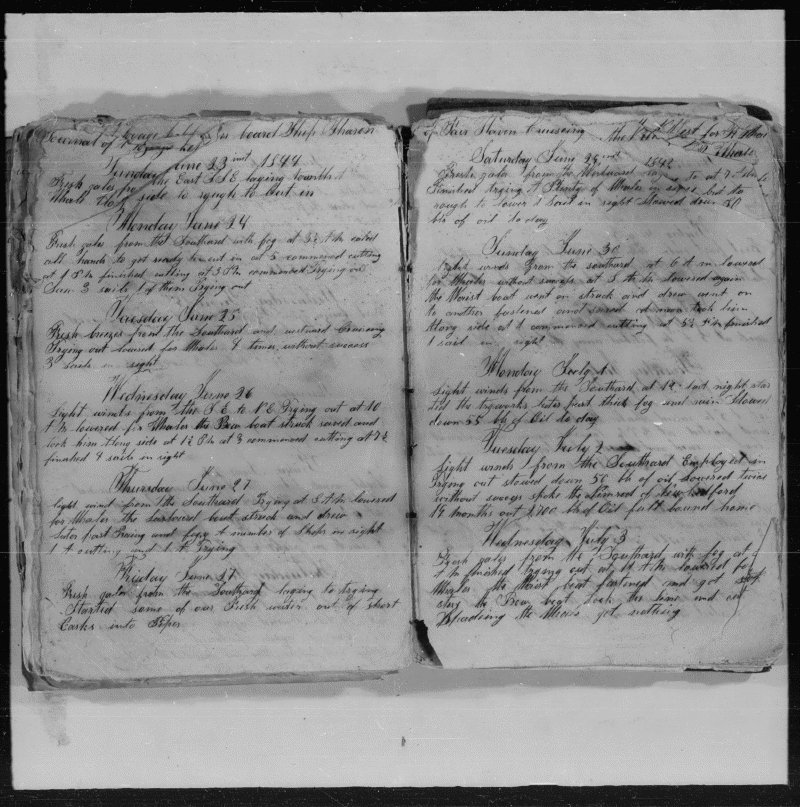 Journal of a voyage on board Ship Sharon
Sunday June 23 inst 1844
Fresh gales from the East S S E laying
Whale along side to rough to Cut in
Monday June 24
Fresh gales from the Southard with fog at 3½ A M called
all hands to get ready to cut in at 5 commenced cutting
at 1 P M finished cutting at 3 P M commenced Trying out
Saw 3 sails 1 of them Trying out
Tuesday June 25
Fresh breezes from the Southard and westward Cruiseing
Trying out lowered for Whales 4 times without success
3 sails in sight
Wednesday June 26
Light winds from the S E to N E Trying out at 10
A M lowered for Whales the Bow boat struck saved and
took him along side at 1½ P M at 3 commenced cutting at 7½
finished 4 sails in sight
Thursday June 27
light wind from the Southard Trying at 8 A M lowered
for Whales the Larboard boat struck and drew
Later part Raing and foggy A number of Ships in sight
1 A cutting and 1 A Trying
Friday June 27
Fresh gales from the Southard laying to trying
Started some of our Fresh water out of Short
Casks into Pipes
of Fair Haven Cruiseing the for
Whale
Saturday June 29 1844
Fresh gales from the Westward to at 7
finished trying A Plenty of Whales in sight but too
rough to lower 1 Sail in sight Stowed down 50
bls of oil to day
Sunday June 30
light winds from the southard at 6 A m lowered
for Whales without success at 8 A M lowered again
the Waist boat went on struck and drew went on
to another fastened and saved took him
along side at 1 commenced cutting at 5½ P M finished
1 sail in sight
Monday July 1
Light winds from the Southard at 12 last night star
ted the tryworks later part thick fog and rain Stowed
down 55 bls of Oil to day
Tuesday July 2
Light winds from the Southard Employed in
Trying out stowed down 50 bls of oil Lowered twice
without success spoke the of New Bedford
19 months out 2700 bls of Oil full bound home
Wednesday July 3
Fresh gales from the Southard with fog at
A M finished trying out at A M lowered for
Whales the Waist boat fastened and got
the Bow boat took the line and
Spadeing the Whale got nothing